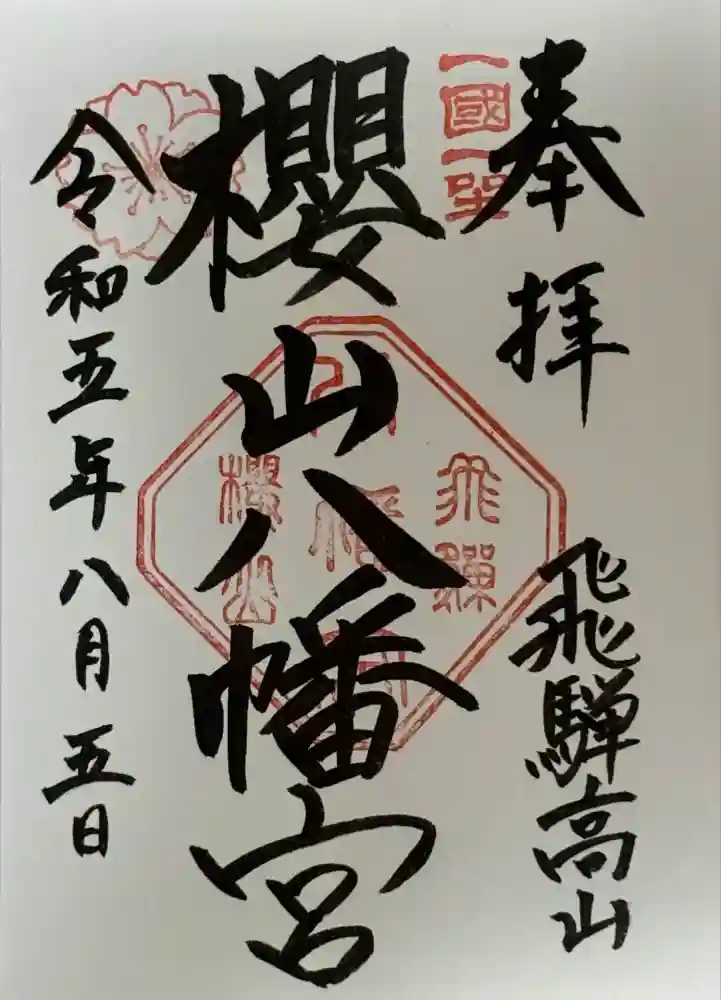 奉拝
飛騨高山
一國一社
櫻山八幡宮
飛驒
八幡宮
櫻山
令和五年八月五日